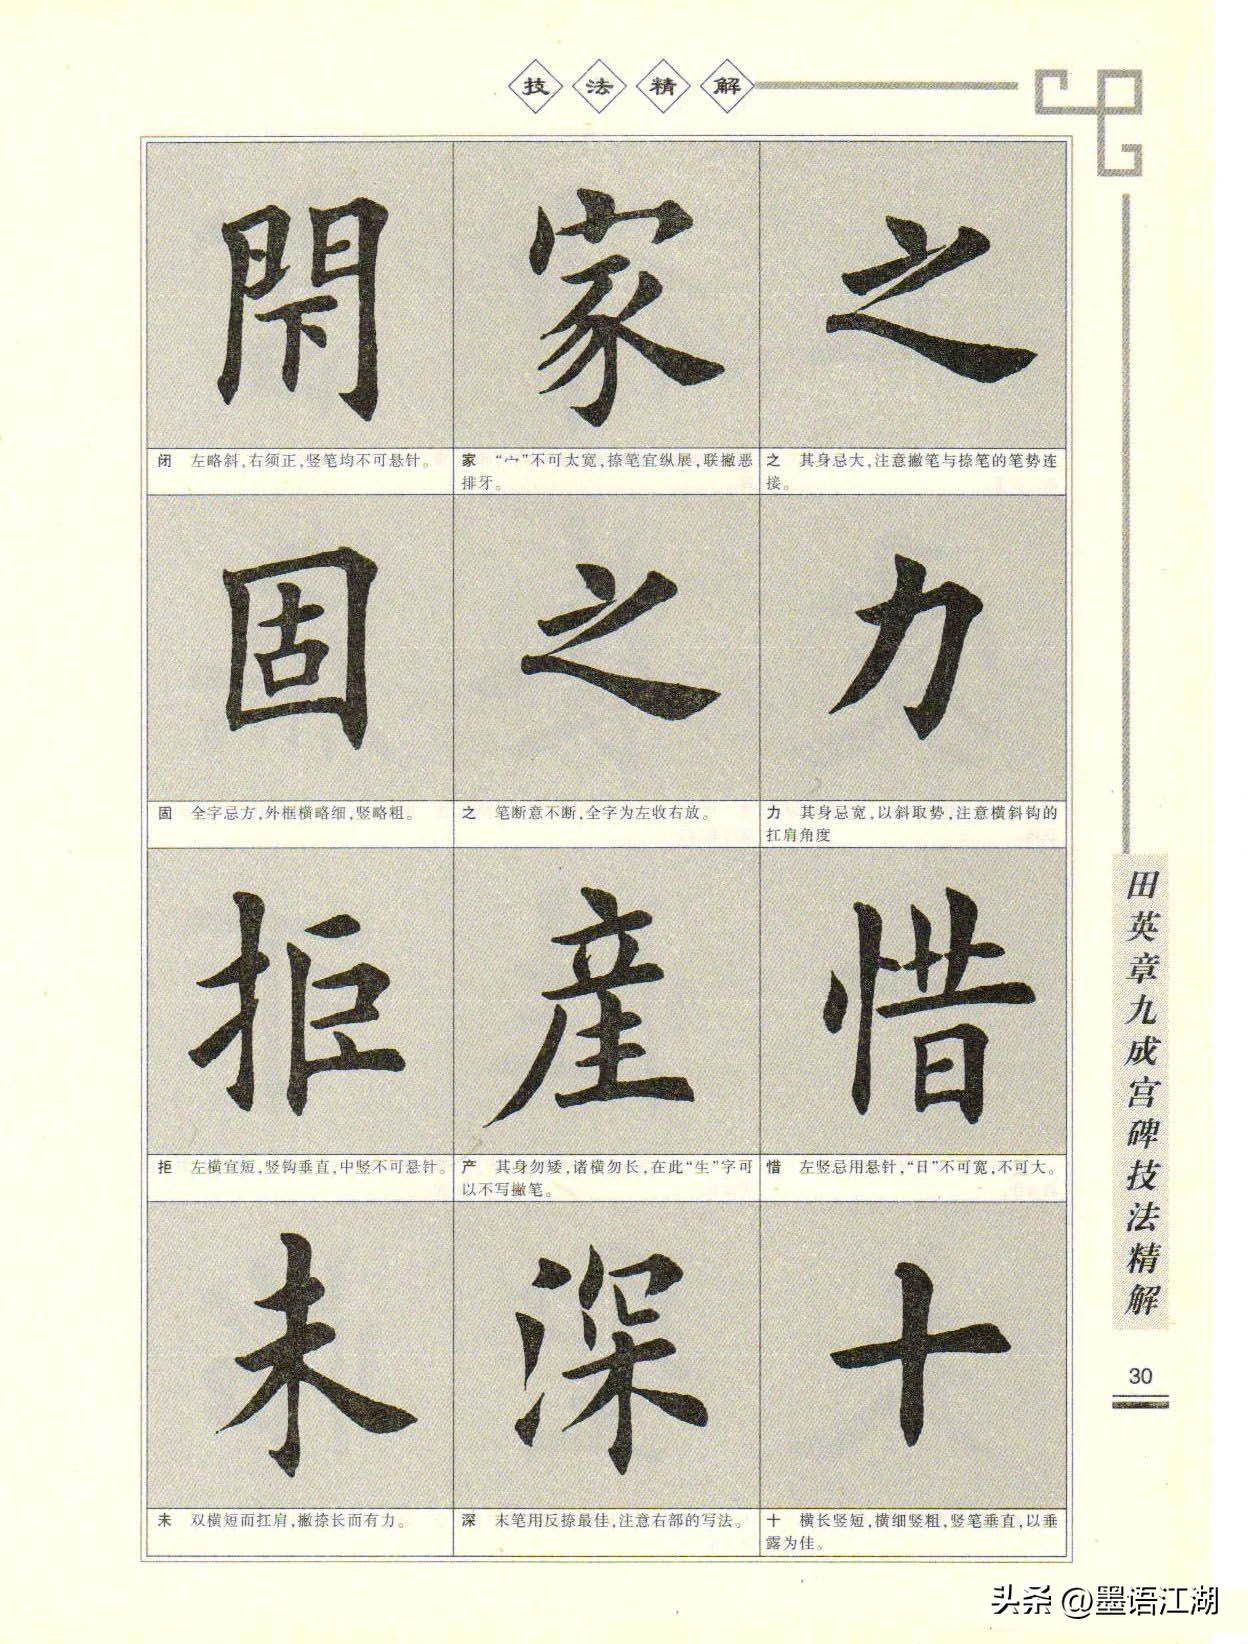 技法精解
閇 家 之
闭 左略斜,右须正,竖笔均不可悬针。
家 “宀”不可太宽,捺笔宜纵展,联撇恶
排牙。
之 其身忌大,注意撇笔与捺笔的笔势连
接。
固 之 力
固 全字忌方,外框横略细,竖略粗。
之 笔断意不断,全字为左收右放。
力 其身忌宽,以斜取势,注意横斜钩的
扛肩角度
拒 産 惜
拒 左横宜短,竖钩垂直,中竖不可悬针。
产 其身勿矮,诸横勿长,在此“生”字可
以不写撇笔。
惜 左竖忌用悬针,“日”不可宽,不可大。
未 深 十
未 双横短而扛肩,撇捺长而有力。
深 末笔用反捺最佳,注意右部的写法。
十 横长竖短,横细竖粗,竖笔垂直,以垂
露为佳。
田英章九成宫碑技法精解
30
头条 @墨语江湖